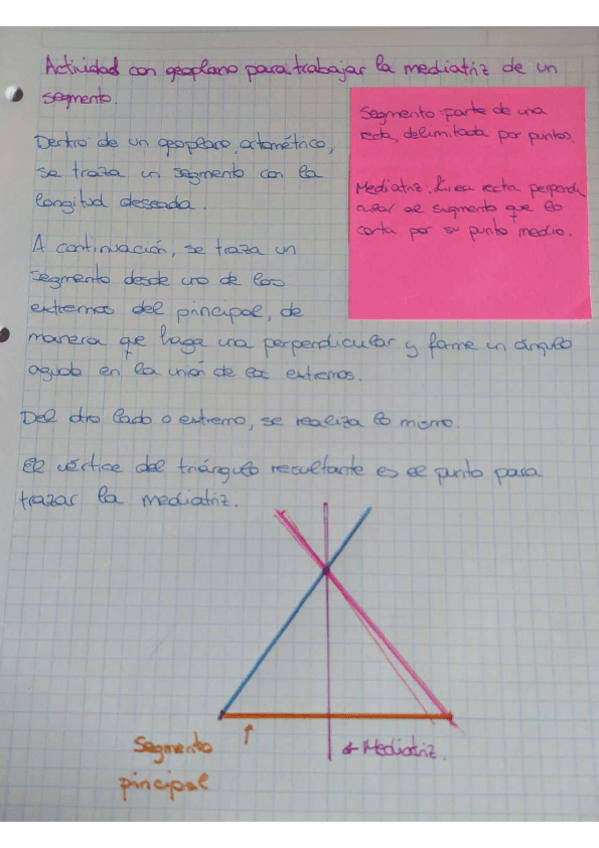 Actividad con geoplano para trabajar la mediatriz de un
segmento.
Segmento: parte de una
recta, delimitada por puntos.
Mediatriz: Línea recta perpendi
cular al segmento que lo
corta por su punto medio.
Dentro de un geoplano ortométrico,
se traza un segmento con la
longitud deseada.
A continuación, se traza un
segmento desde uno de los
extremos del principal, de
manera que haga una perpendicular y forme un ángulo
agudo en la unión de los extremos.
Del otro lado o extremo, se realiza lo mismo.
El vértice del triángulo resultante es el punto para
trazar la mediatriz.
Segmento
principal
Mediatriz.